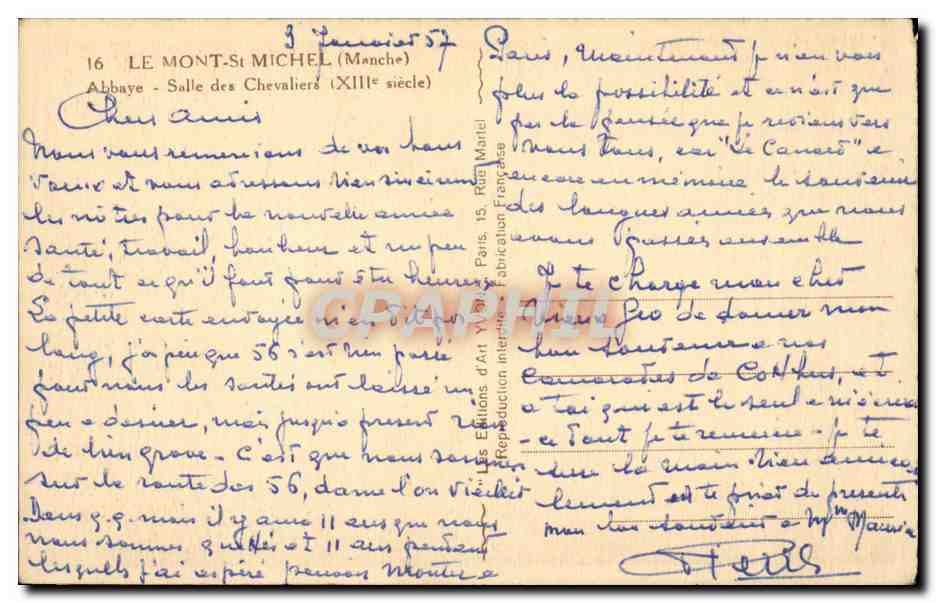 3 Janvier 57
16 LE MONT-St MICHEL (Manche)
Abbaye - Salle des Chevaliers (XIIIe siècle)
Chers amis
Nous vous remercions de vos bons
vœux et vous adressons bien sincèrement
les nôtres pour la nouvelle année
santé, travail, bonheur et un peu
de tout ce qu'il faut pour être heureux
La petite carte envoyée n'en dit pas
long, j'espère que 56 s'est bien passé
pour nous les santés ont laissé un
peu à désirer, mais jusqu'à présent rien
de bien grave - C'est que nous sommes
sur la route des 56, dame l'on vieillit
Dans q.q. mois il y aura 11 ans que nous
nous sommes quittés et 11 ans pendant
lesquels j'ai espéré pouvoir monter à
"Les Editions d'Art YVON" Paris, 15, Rue Martel
Reproduction interdite - Fabrication Française
CPAPHIL
Paris, Maintenant je n'en vois
plus la possibilité et ce n'est que
par la pensée que je reviens vers
vous tous, car "Le Canard" a
encore en mémoire le souvenir
des longues années que nous
avons passées ensemble
Je te charge mon cher
vieux Géo de donner mon
bon souvenir à nos
camarades de
à toi qui est le seul à m'écrire
ce tout je te remercie - je te
serre la main bien amica-
lement et te prie de présenter
mon bon souvenir à Mme